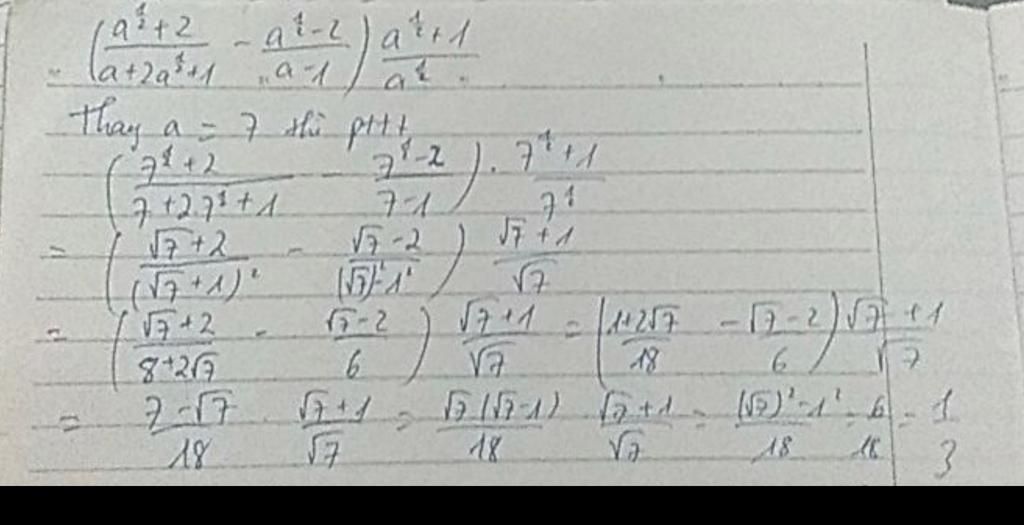 (a^½+2 / a+2a^½+1 - a^½-2 / a-1) a^½+1 / a^½
Thay a = 7 thì pttt
(7^½+2 / 7+2.7^½+1 - 7^½-2 / 7-1) . 7^½+1 / 7^½
= (√7+2 / (√7+1)² - √7-2 / (√7)²-1²) √7+1 / √7
= (√7+2 / 8+2√7 - √7-2 / 6) √7+1 / √7 = (1+2√7 / 18 - √7-2 / 6) √7+1 / √7
= 7-√7 / 18 . √7+1 / √7 = √7(√7-1) / 18 . √7+1 / √7 = (√7)²-1² / 18 = 6 / 18 = 1 / 3